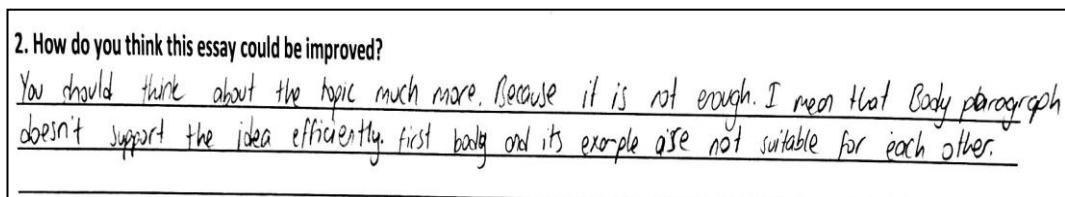 2. How do you think this essay could be improved?
You should think about the topic much more. Because it is not enough. I mean that Body paragraph
doesn't support the idea efficiently. first body and its example are not suitable for each other.